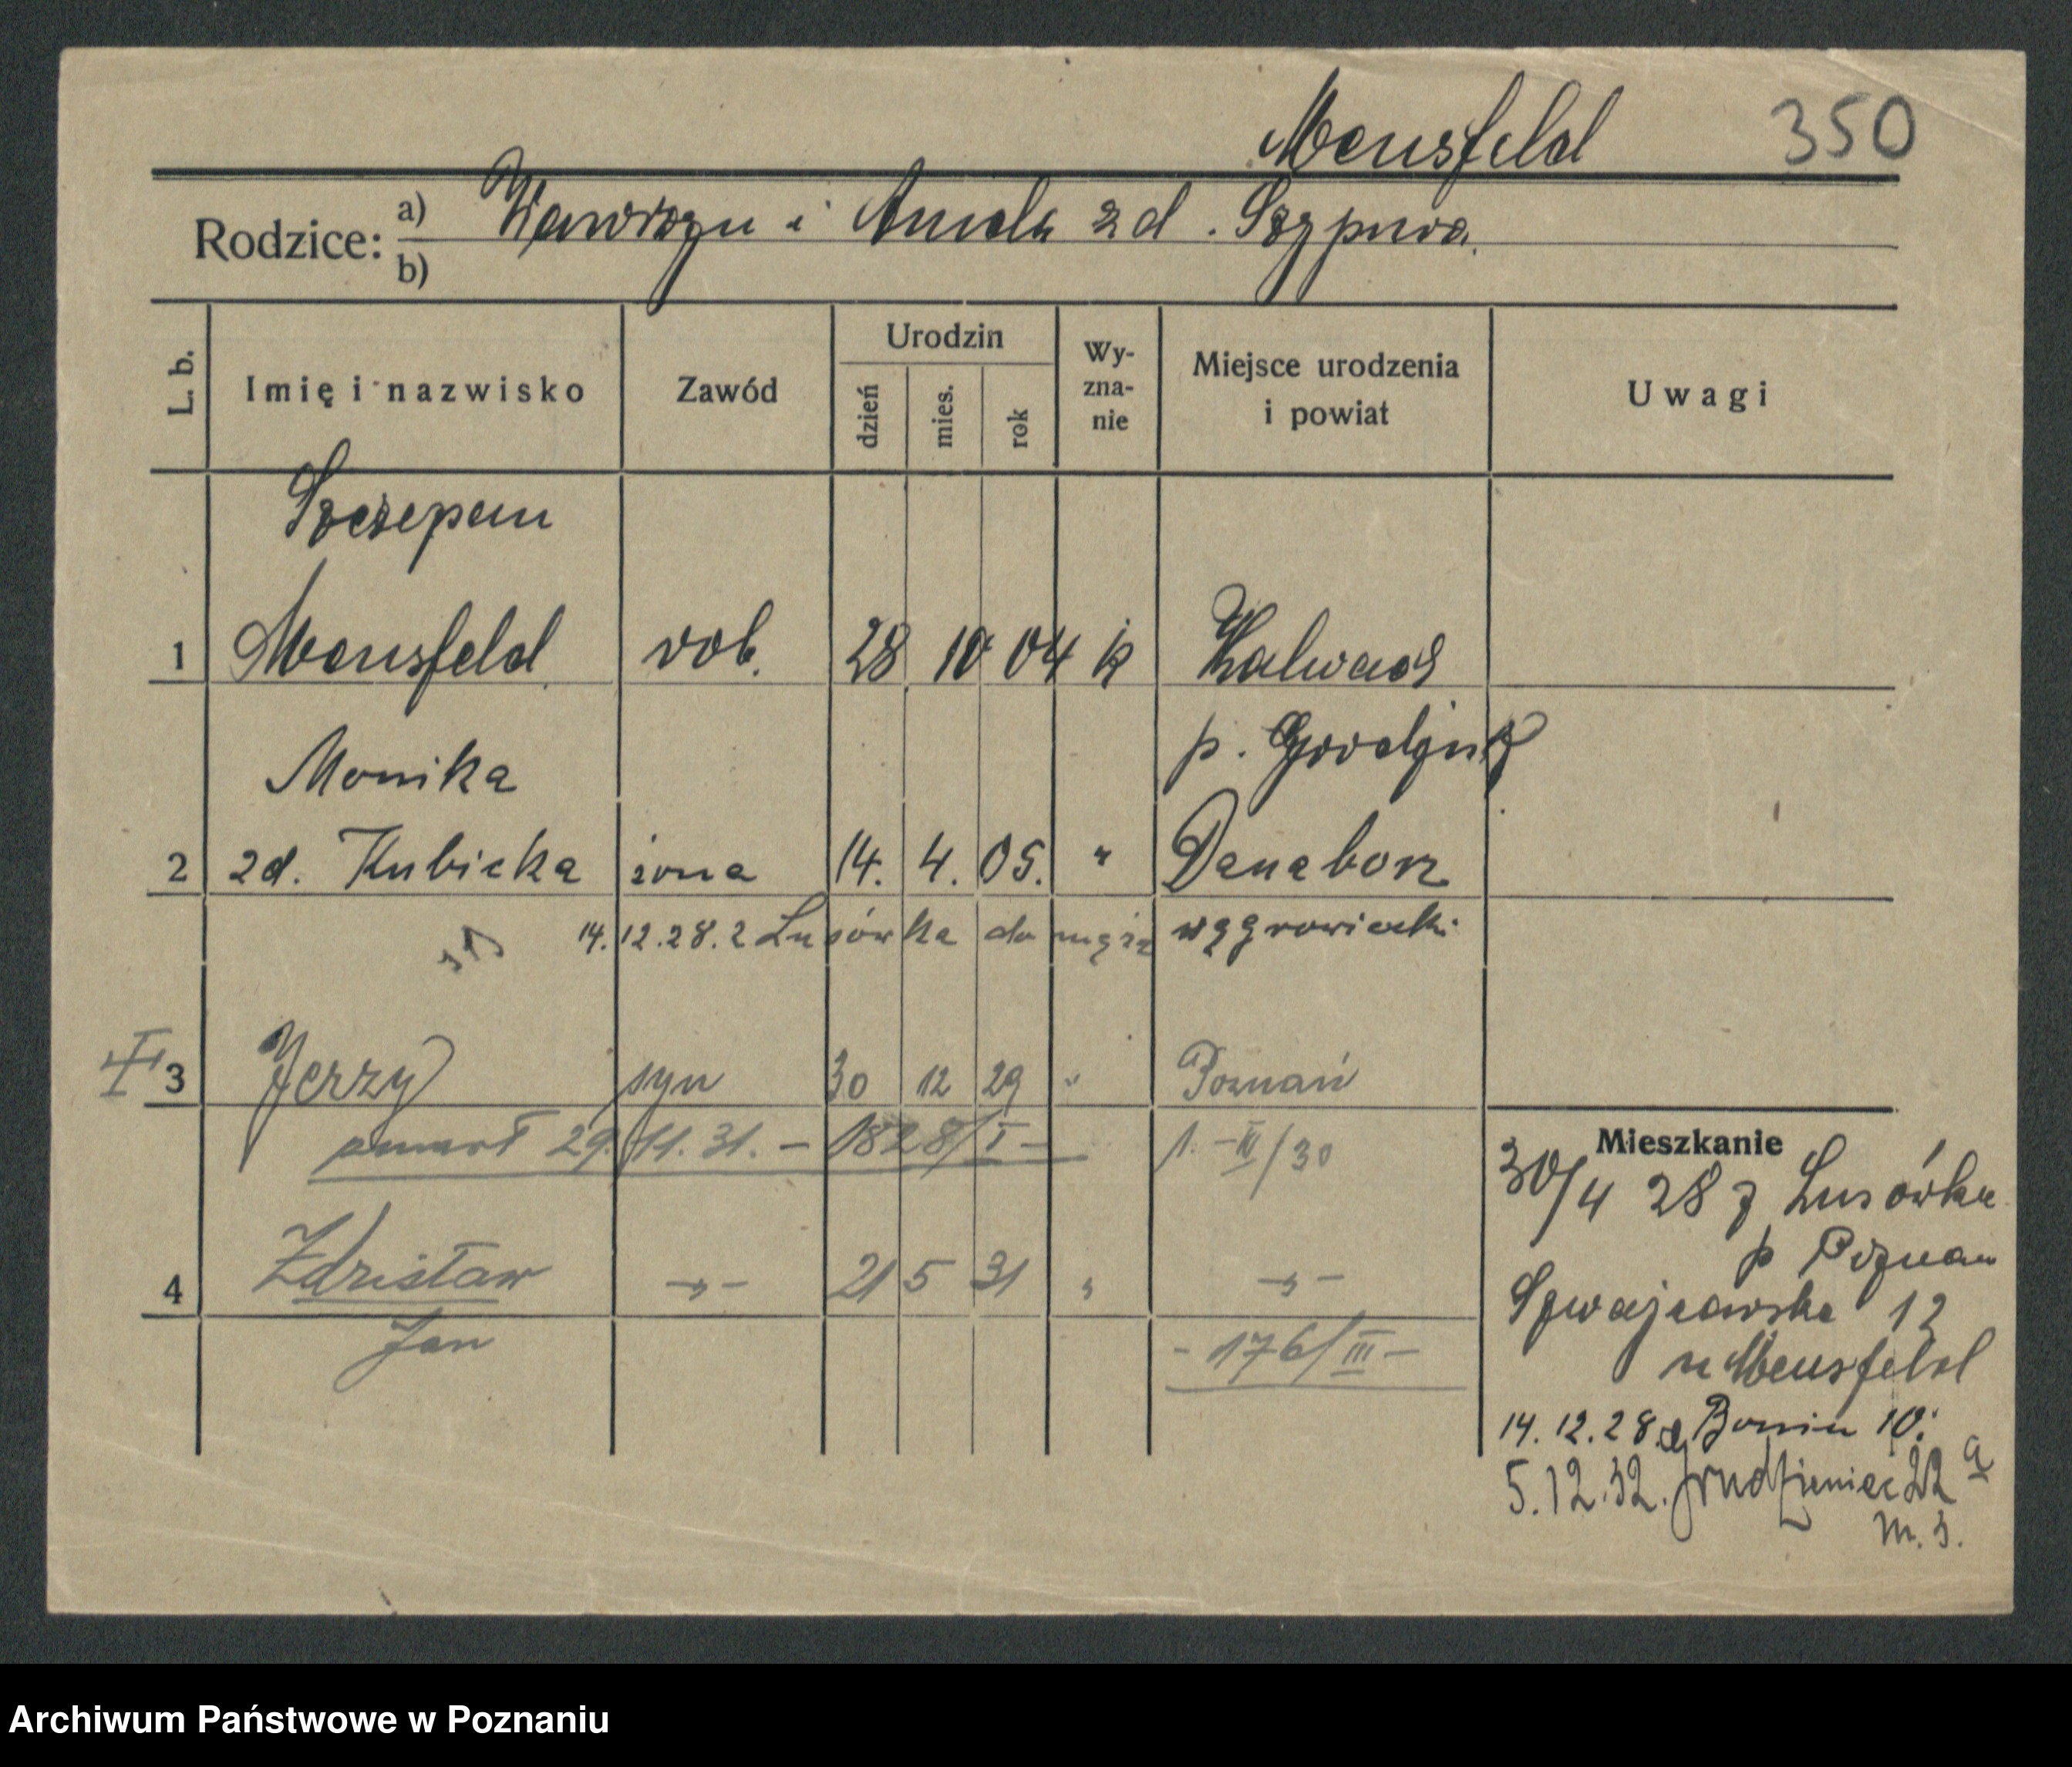 Mensfeld 350
Rodzice: a) Wawrzyn i Aniela z d. Szypura
b)
L. b. Imię i nazwisko Zawód Urodzin dzień mies. rok Wyznanie Miejsce urodzenia i powiat Uwagi
Szczepan
1 Mensfeld rob. 28 10 04 k Kalwach
p. Grodzisk
Monika
2 zd. Kubicka żona 14. 4. 05. " Danaborz
14.12.28. z Lusówka do męża wągrowiecki
3 Jerzy syn 30 12 29 " Poznań
zmarł 29.11.31. – 1828/I – 1.-III/30
Mieszkanie
30/4 28 z Lusówka
p Poznań
Szwajcarska 12
u Mensfeld
4 Zdzisław –„– 21 5 31 " –„–
Jan - 176/III -
14.12.28. Bonin 10.
5.12.32. Grudzieniec 22 a
m. 3.
Archiwum Państwowe w Poznaniu